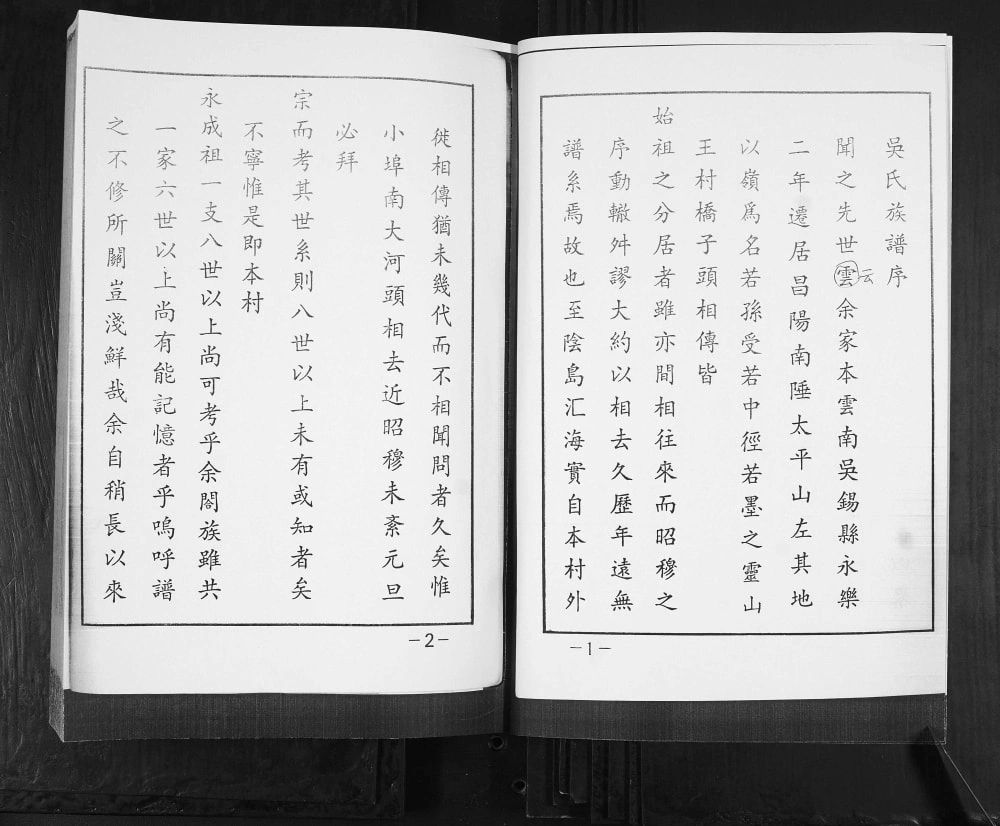 吳氏族譜序
聞之先世雲余家本雲南吳錫縣永樂
云
二年遷居昌陽南陲太平山左其地
以嶺爲名若孫受若中徑若墨之靈山
王村橋子頭相傳皆
始祖之分居者雖亦間相往來而昭穆之
序動轍舛謬大約以相去久歷年遠無
譜系焉故也至陰島汇海實自本村外
－1－
徙相傳猶未幾代而不相聞問者久矣惟
小埠南大河頭相去近昭穆未紊元旦
必拜
宗而考其世系則八世以上未有或知者矣
不寧惟是即本村
永成祖一支八世以上尚可考乎余閤族雖共
一家六世以上尚有能記憶者乎嗚呼譜
之不修所關豈淺鮮哉余自稍長以來
－2－